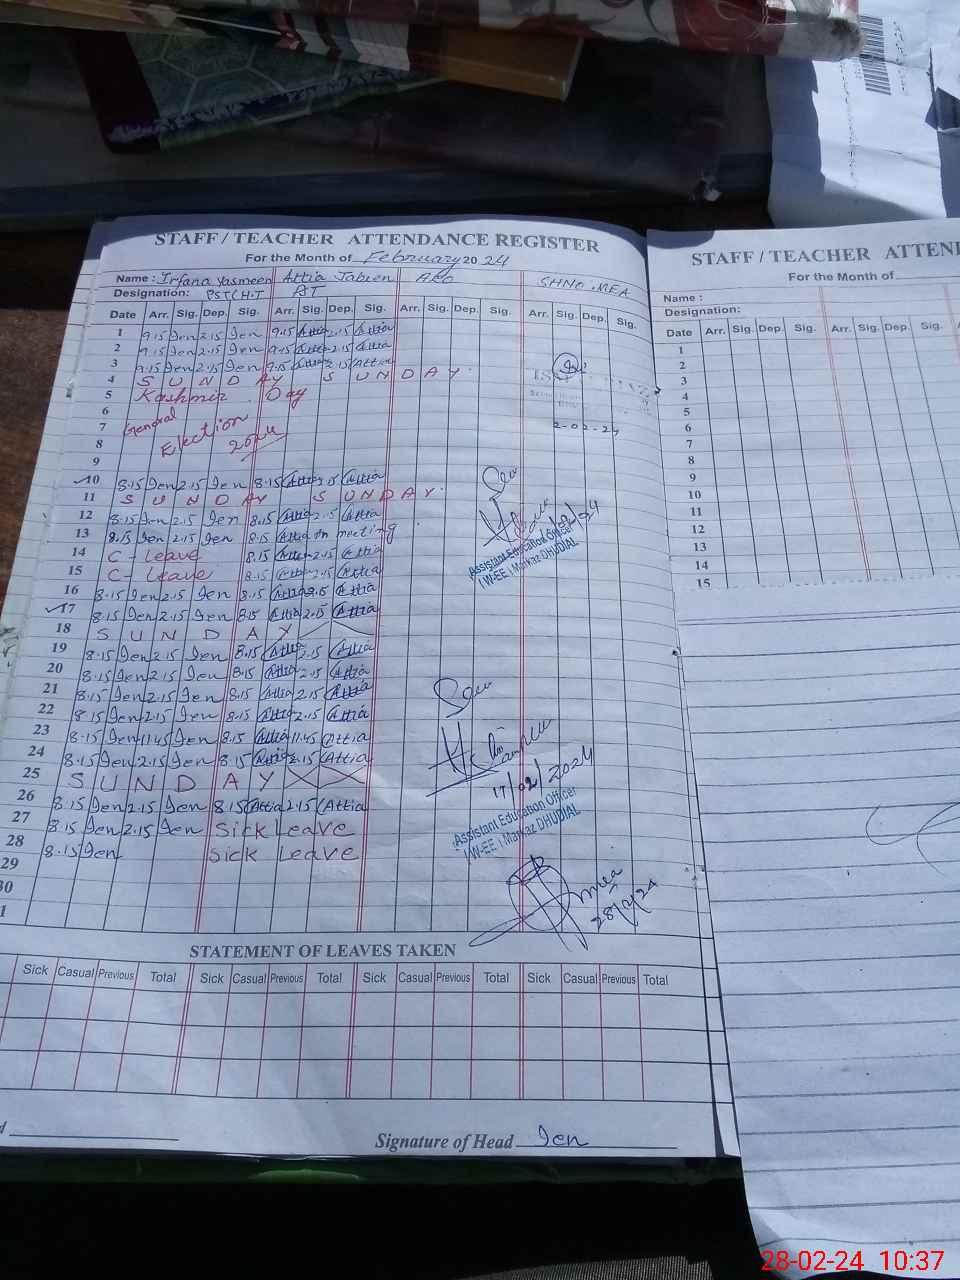 STAFF / TEACHER ATTENDANCE REGISTER
For the Month of February 2024
Name : Irfana Yasmeen Attia Jabien AEO SHNO . MEA
Designation: PST(H.T PST
Date Arr. Sig. Dep. Sig. Arr. Sig. Dep. Sig. Arr. Sig. Dep. Sig. Arr. Sig. Dep. Sig.
1 9.15 Jen 2.15 Jen 9.15 Attia 2.15 Attia
2 9.15 Jen 2.15 Jen 9.15 Attia 2.15 Attia
3 9.15 Jen 2.15 Jen 9.15 Attia 2.15 Attia
4 S U N D A Y S U N D A Y .
5 Kashmir . Day
6
7 General
8 Election 2024
2-02-24
9
10 8.15 Jen 2.15 Jen 8.15 Attia 2.15 Attia
11 S U N D A Y S U N D A Y .
12 8.15 Jen 2.15 Jen 8.15 Attia 2.15 Attia
13 8.15 Jen 2.15 Jen 8.15 Attia on meeting
14 C - Leave 8.15 Attia 2.15 Attia
15 C - Leave 8.15 Attia 2.15 Attia
Assistant Education Officer
(W-EE) Markaz DHUDIAL
16 8.15 Jen 2.15 Jen 8.15 Attia 2.15 Attia
17 8.15 Jen 2.15 Jen 8.15 Attia 2.15 Attia
18 S U N D A Y
19 8.15 Jen 2.15 Jen 8.15 Attia 2.15 Attia
20 8.15 Jen 2.15 Jen 8.15 Attia 2.15 Attia
21 8.15 Jen 2.15 Jen 8.15 Attia 2.15 Attia
22 8.15 Jen 2.15 Jen 8.15 Attia 2.15 Attia
23 8.15 Jen 11.45 Jen 8.15 Attia 11.45 Attia
24 8.15 Jen 2.15 Jen 8.15 Attia 2.15 Attia
25 S U N D A Y
17/02/2024
26 8.15 Jen 2.15 Jen 8.15 Attia 2.15 Attia
Assistant Education Officer
(W-EE) Markaz DHUDIAL
27 8.15 Jen 2.15 Jen Sick Leave
28 8.15 Jen Sick Leave
29
mea
28/2/24
30
1
STATEMENT OF LEAVES TAKEN
Sick Casual Previous Total Sick Casual Previous Total Sick Casual Previous Total Sick Casual Previous Total
Signature of Head Jen
STAFF / TEACHER ATTEN
For the Month of
Name :
Designation:
Date Arr. Sig. Dep. Sig. Arr. Sig. Dep. Sig.
1
2
3
4
5
6
7
8
9
10
11
12
13
14
15
28-02-24 10:37